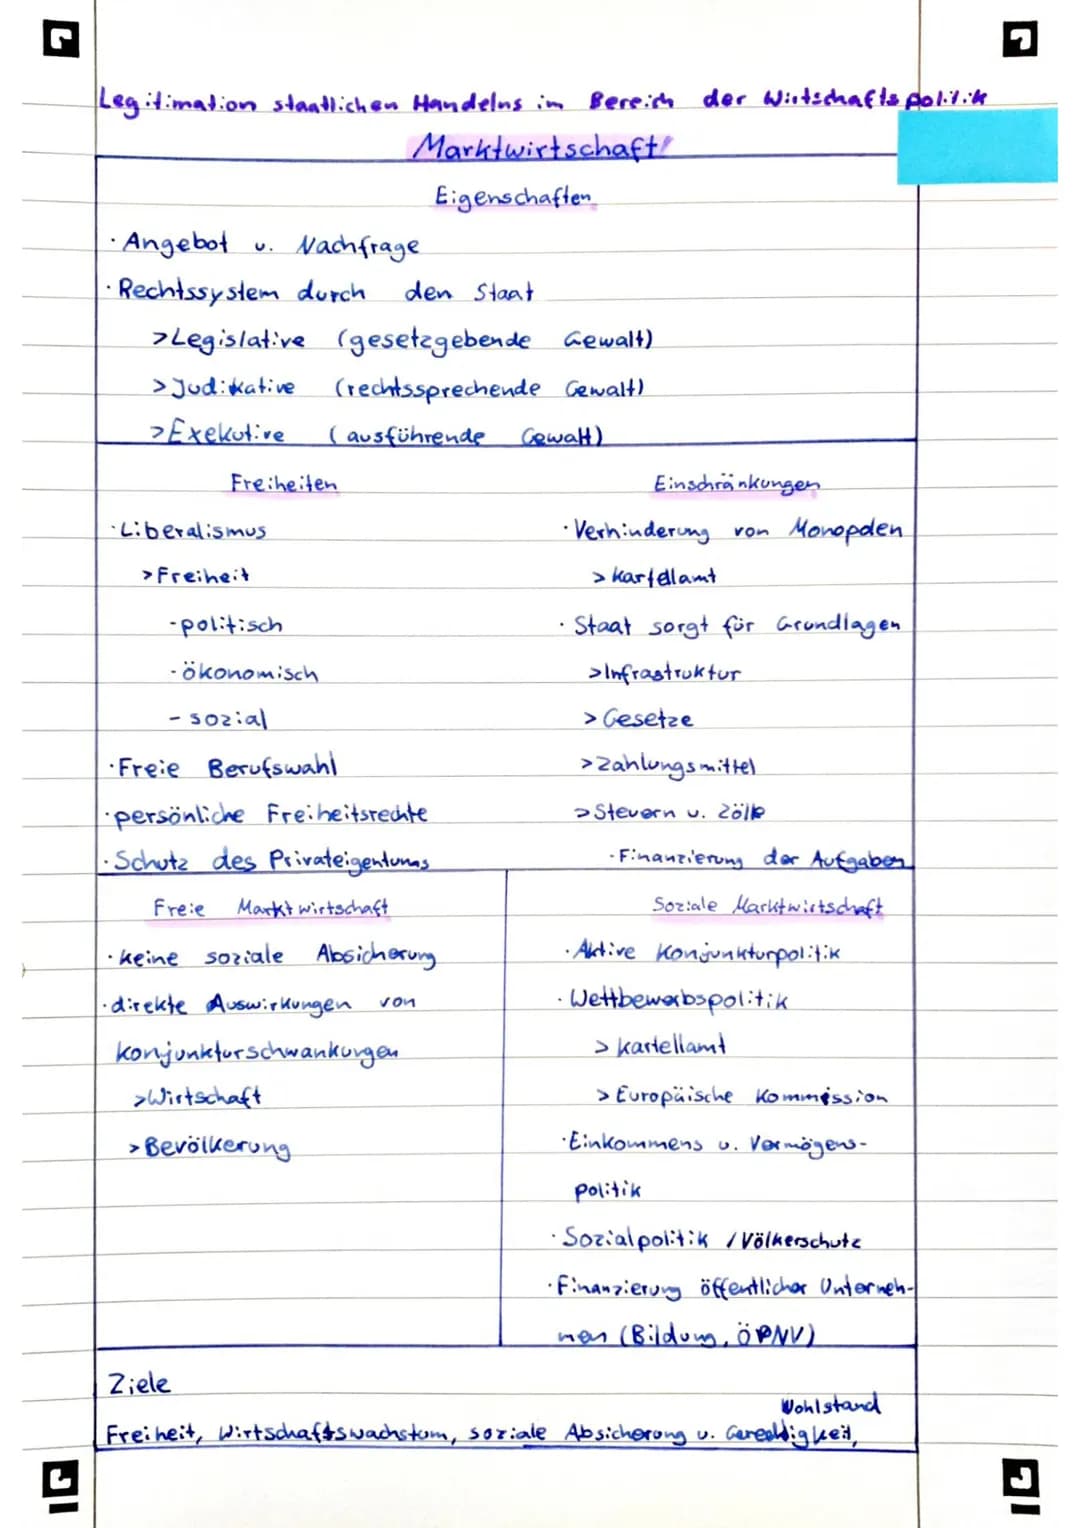 Legitimation staatlichen Handelns im Bereich der Wirtschaftspolitik
Marktwirtschaft!
Eigenschaften
· Angebot u. Nachfrage
· Rechtssystem durch den Staat
>Legislative (gesetzgebende Gewalt)
>Judikative (rechtssprechende Gewalt)
>Exekutive (ausführende Gewalt)
Freiheiten
· Liberalismus
>Freiheit
- politisch
- ökonomisch
- sozial
· Freie Berufswahl
· persönliche Freiheitsrechte
· Schutz des Privateigentums
Einschränkungen
· Verhinderung von Monopolen
> Kartellamt
· Staat sorgt für Grundlagen
>Infrastruktur
> Gesetze
>Zahlungsmittel
>Steuern u. Zölle
· Finanzierung der Aufgaben
Freie Marktwirtschaft
· keine soziale Absicherung
· direkte Auswirkungen von
Konjunkturschwankungen
>Wirtschaft
>Bevölkerung
Soziale Marktwirtschaft
· Aktive Konjunkturpolitik
· Wettbewerbspolitik
> Kartellamt
> Europäische Kommission
· Einkommens u. Vermögens-
politik
· Sozialpolitik / Völkerschutz
· Finanzierung öffentlicher Unterneh-
men (Bildung, ÖPNV)
Ziele
Wohlstand
Freiheit, Wirtschaftswachstum, soziale Absicherung u. Gerechtigkeit,